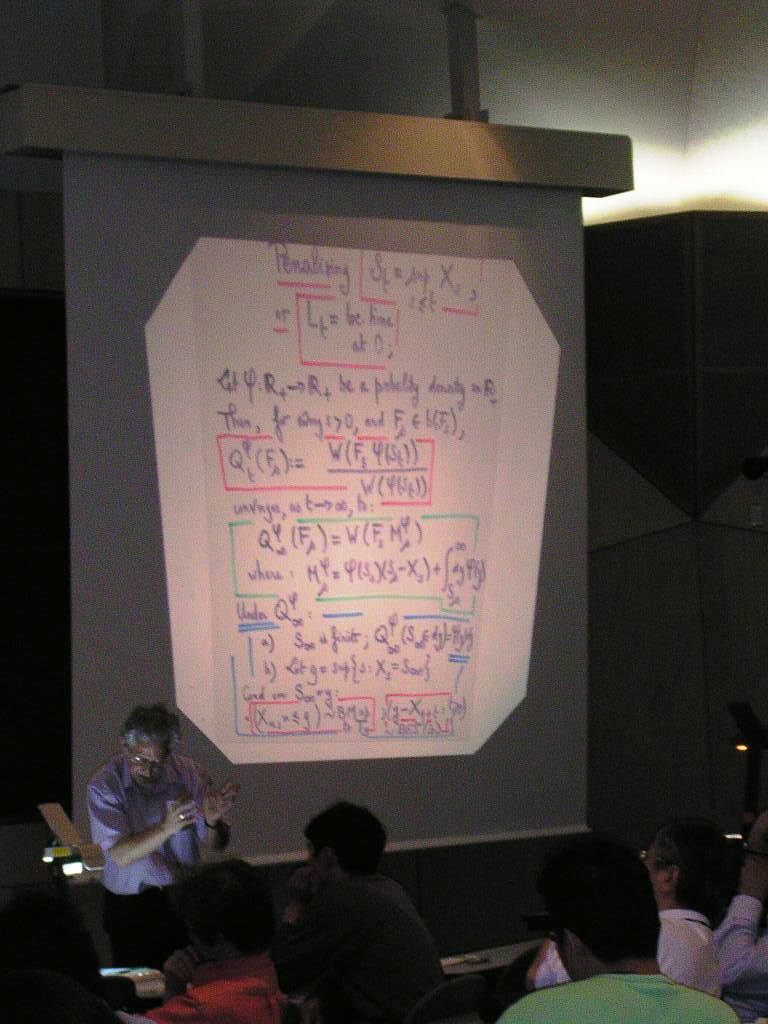 Penalising S_t = sup X_s,
s≤t
or L_t = loc. time
at 0;
Let φ: R_+ → R_+ be a probability density on R_+
Then, for any s>0, and F_s ∈ b(F_s),
Q_t^φ(F_s) := W(F_s φ(S_t)) / W(φ(S_t))
converges, as t→∞, to:
Q_∞^φ(F_s) = W(F_s M_s^φ)
where: M_s^φ = φ(S_s)(S_s-X_s) + ∫_{S_s}^∞ dy φ(y)
Under Q_∞^φ:
a) S_∞ is finite; Q_∞^φ(S_∞ ∈ dy) = φ(y)dy
b) Let g = sup{s: X_s = S_∞}
Cond on S_∞ = y:
(X_u, u ≤ g) ~ BM